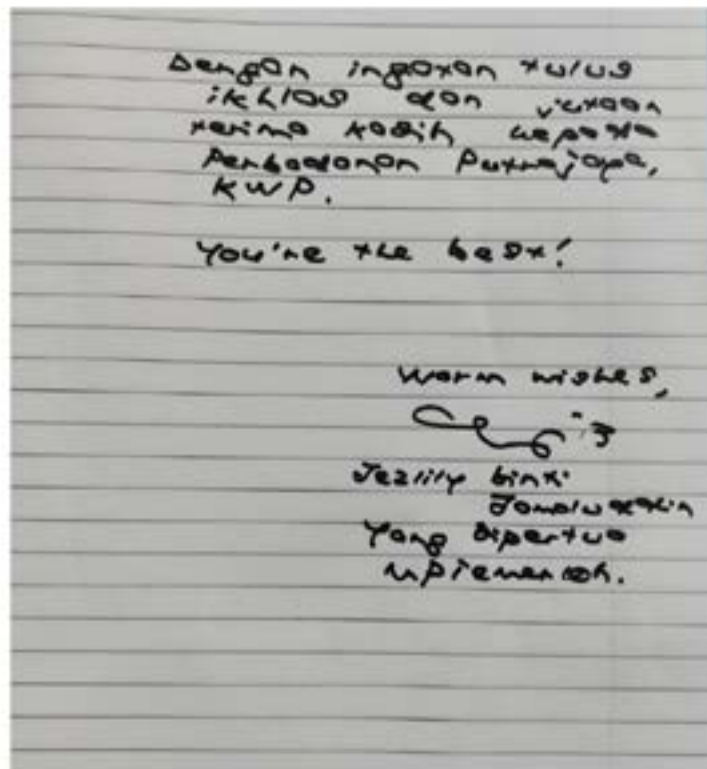 Dengan ingatan tulus
ikhlas dan jutaan
terima kasih kepada
Perbadanan Putrajaya,
KWP.
You're the best!
Warm wishes,
Jezlily binti
Jamaluddin
Yang Dipertua